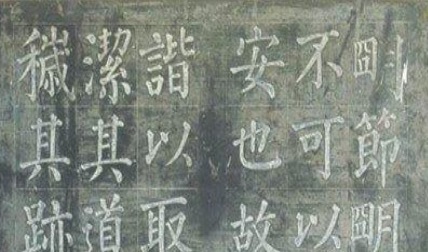 明節明
不可以
安也故
諧以取
潔其道
穢其跡